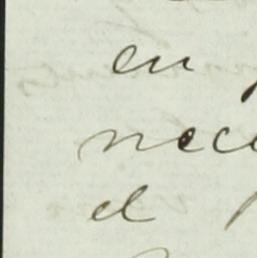 en
nece
el